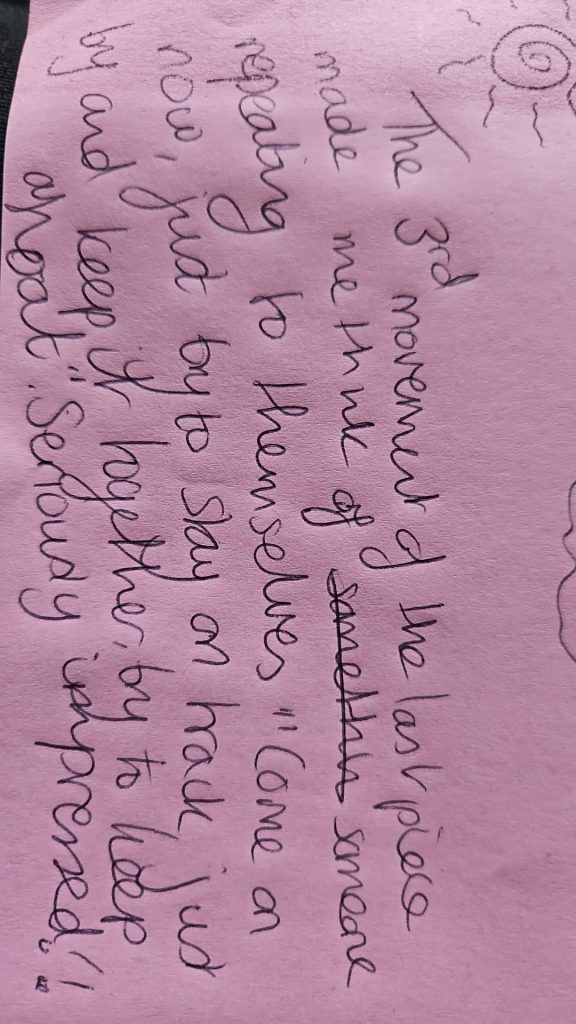 The 3rd movement of the last piece
made me think of somethin someone
repeating to themselves "Come on
now, just try to stay on track, just
try and keep it together, try to keep
afloat". Seriously impressed!!